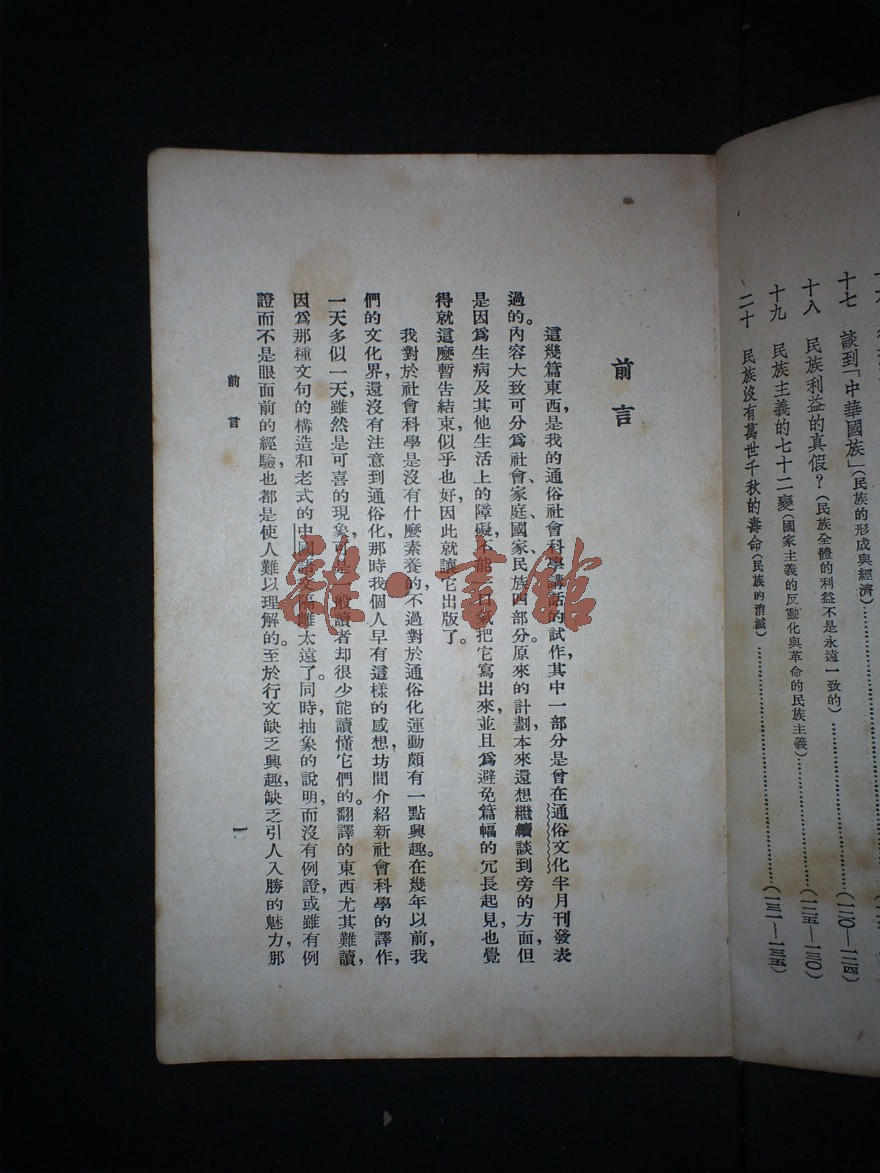 十七　談到「中華國族」(民族的形成與經濟)……………(一二〇—一二四)
十八　民族利益的真假？(民族全體的利益不是永遠一致的)……………(一二五—一三〇)
十九　民族主義的七十二變(國家主義的反動化與革命的民族主義)……………
二十　民族沒有萬世千秋的壽命(民族的消滅)……………(一三一—一三五)
前言
這幾篇東西，是我的通俗社會科學講話的試作，其中一部分是曾在通俗文化半月刊發表
過的。內容大致可分爲社會、家庭、國家、民族四部分。原來的計劃，本來還想繼續談到旁的方面，但
是因爲生病及其他生活上的障礙，不能一口氣把它寫出來，並且爲避免篇幅的冗長起見，也覺
得就這麼暫告結束，似乎也好，因此就讓它出版了。
我對於社會科學是沒有什麼素養的，不過對於通俗化運動頗有一點興趣。在幾年以前，我
們的文化界，還沒有注意到通俗化，那時我個人早有這樣的感想，坊間介紹新社會科學的譯作，
一天多似一天，雖然是可喜的現象，可是一般讀者却很少能讀懂它們的。翻譯的東西尤其難讀，
因爲那種文句的構造和老式的中國語文隔離太遠了。同時，抽象的說明，而沒有例證，或雖有例
證而不是眼面前的經驗，也都是使人難以理解的。至於行文缺乏興趣，缺乏引人入勝的魅力，那
前言
一
雜·書館